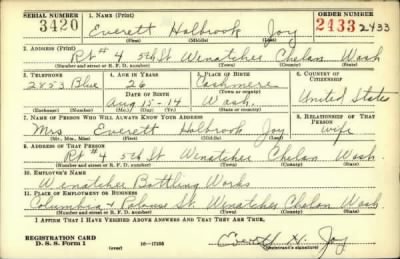 SERIAL NUMBER 1. NAME (Print) ORDER NUMBER
3420 Everett Holbrook Joy 2433 2433
(First) (Middle) (Last)
2. ADDRESS (Print)
Rt #4 5th St Winatchee Chelan Wash
(Number and street or R. F. D. number) (Town) (County) (State)
3. TELEPHONE 4. AGE IN YEARS 5. PLACE OF BIRTH 6. COUNTRY OF CITIZENSHIP
2853 Blue 26 Cashmere
DATE OF BIRTH (Town or county)
Aug 15-14 Wash. United States
(Exchange) (Number) (Mo.) (Day) (Yr.) (State or country)
7. NAME OF PERSON WHO WILL ALWAYS KNOW YOUR ADDRESS 8. RELATIONSHIP OF THAT PERSON
Mrs Everett Holbrook Joy wife
(Mr., Mrs., Miss) (First) (Middle) (Last)
9. ADDRESS OF THAT PERSON
Rt #4 5th St Winatchee Chelan Wash.
(Number and street or R. F. D. number) (Town) (County) (State)
10. EMPLOYER'S NAME
Winatchee Bottling Works
11. PLACE OF EMPLOYMENT OR BUSINESS
Columbia & Palouse St. Winatchee Chelan Wash
(Number and street or R. F. D. number) (Town) (County) (State)
I AFFIRM THAT I HAVE VERIFIED ABOVE ANSWERS AND THAT THEY ARE TRUE.
REGISTRATION CARD
D. S. S. Form 1 (over) 16-17105 Everett H. Joy
(Registrant's signature)